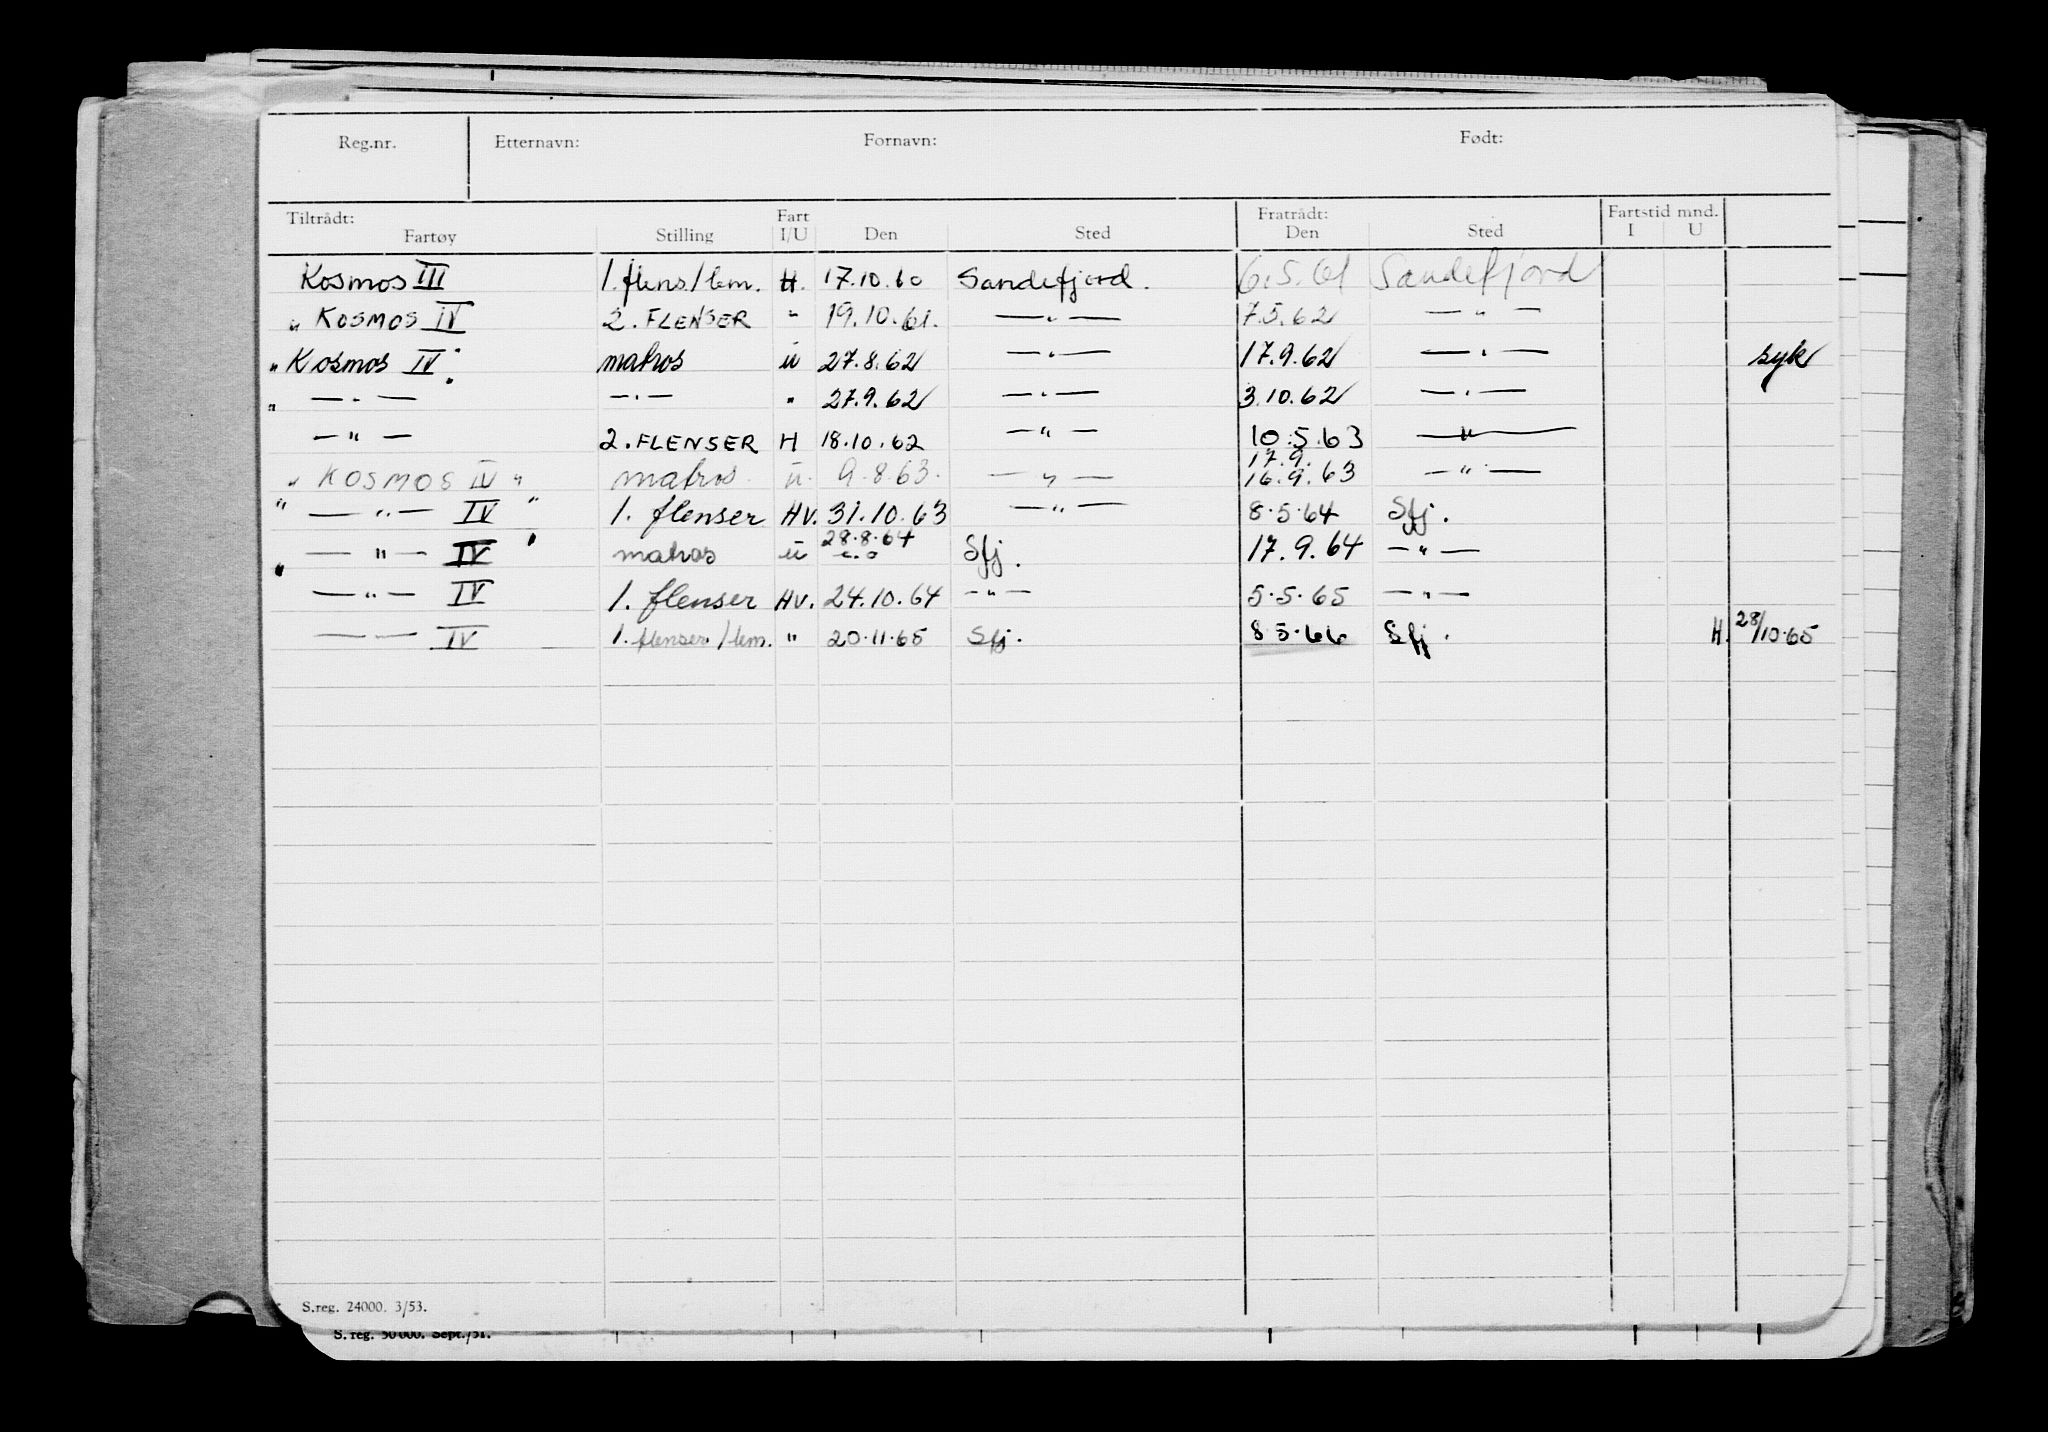 Reg.nr. Etternavn: Fornavn: Født:
Tiltrådt: Fart Fratrådt: Fartstid mnd.
Fartøy Stilling I/U Den Sted Den Sted I U
Kosmos III 1. flens/lem. H. 17.10.60 Sandefjord. 6.5.61 Sandefjord
" KOSMOS IV 2. FLENSER " 19.10.61. — " — 7.5.62 — " —
" Kosmos IV " matros u 27.8.62 — " — 17.9.62 — " — syk
" — " — " — " — " 27.9.62 — " — 3.10.62 — " —
— " — 2. FLENSER H 18.10.62 — " — 10.5.63 — " —
17.9.
" KOSMOS IV " matros u. 9.8.63. — " — 16.9.63 — " —
" — " — IV " 1. flenser HV. 31.10.63 — " — 8.5.64 Sfj.
28.8.64
" — " — IV " matros u Sfj. 17.9.64 — " —
— " — IV 1. flenser HV. 24.10.64 — " — 5.5.65 — " —
— " — IV 1. flenser/lem. " 20.11.65 Sfj. 8.5.66 Sfj. H. 28/10.65
S.reg. 24000. 3/53.
S. reg. 50000. Sept./51.